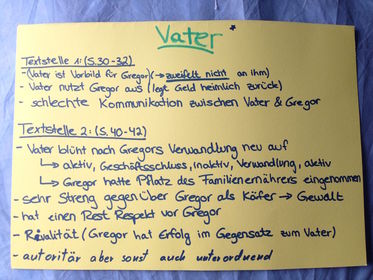 Vater *
Textstelle 1: (S.30-32)
- (Vater ist Vorbild für Gregor) (→ zweifelt nicht an ihm)
- Vater nutzt Gregor aus (legt Geld heimlich zurück)
- schlechte Kommunikation zwischen Vater & Gregor
Textstelle 2: (S.40-42)
- Vater blüht nach Gregors Verwandlung neu auf
↳ aktiv, Geschäftsschluss, inaktiv, Verwandlung, aktiv
↳ Gregor hatte Platz des Familienernährers eingenommen
- sehr Streng gegenüber Gregor als Käfer → Gewalt
- hat einen Rest Respekt vor Gregor
- Rivalität (Gregor hat Erfolg im Gegensatz zum Vater)
- autoritär aber sonst auch unterordnend